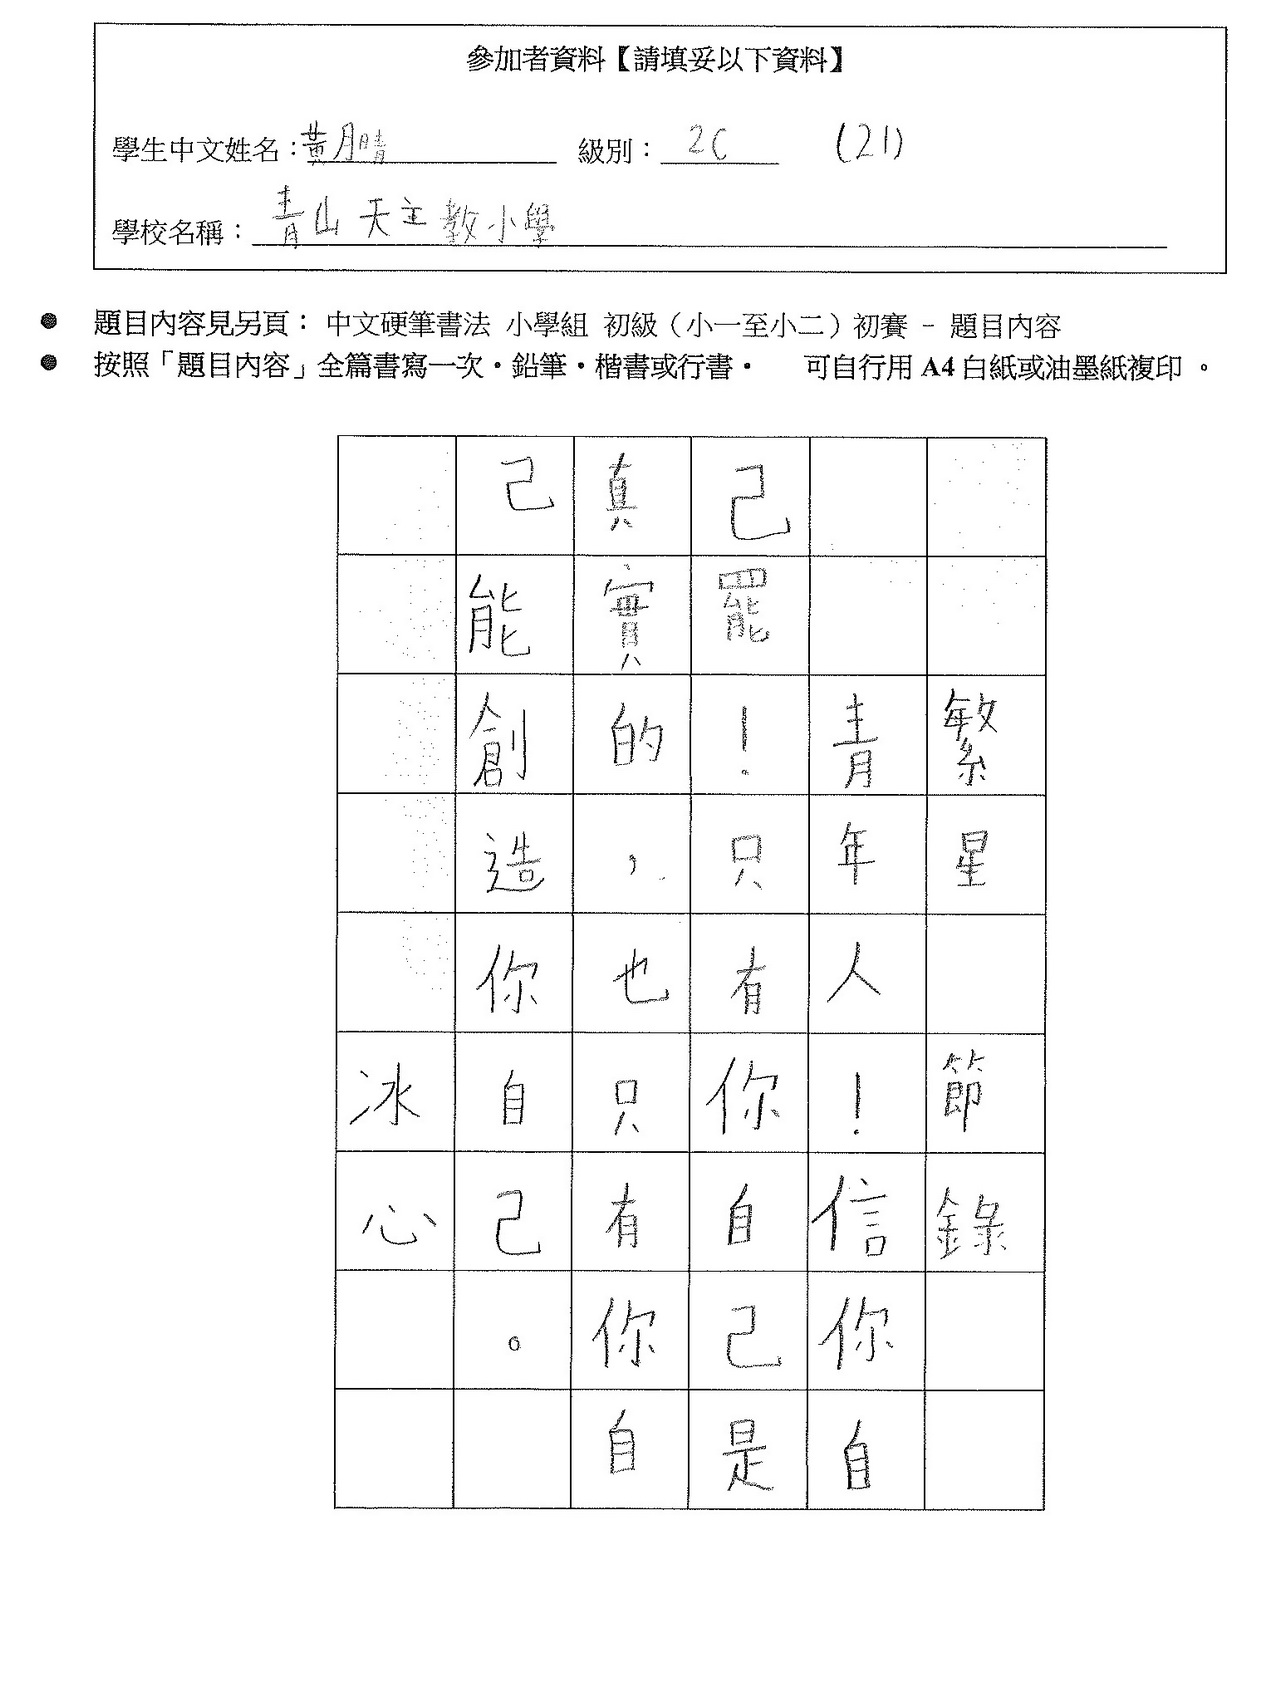 參加者資料【請填妥以下資料】
學生中文姓名：黃月晴 級別：2C (21)
學校名稱：青山天主教小學
● 題目內容見另頁： 中文硬筆書法 小學組 初級（小一至小二）初賽 - 題目內容
● 按照「題目內容」全篇書寫一次・鉛筆・楷書或行書・ 可自行用 A4 白紙或油墨紙複印 。
繁星 節錄
青年人！信你自
己罷！只有你自己是
真實的，也只有你自
己能創造你自己。
冰心